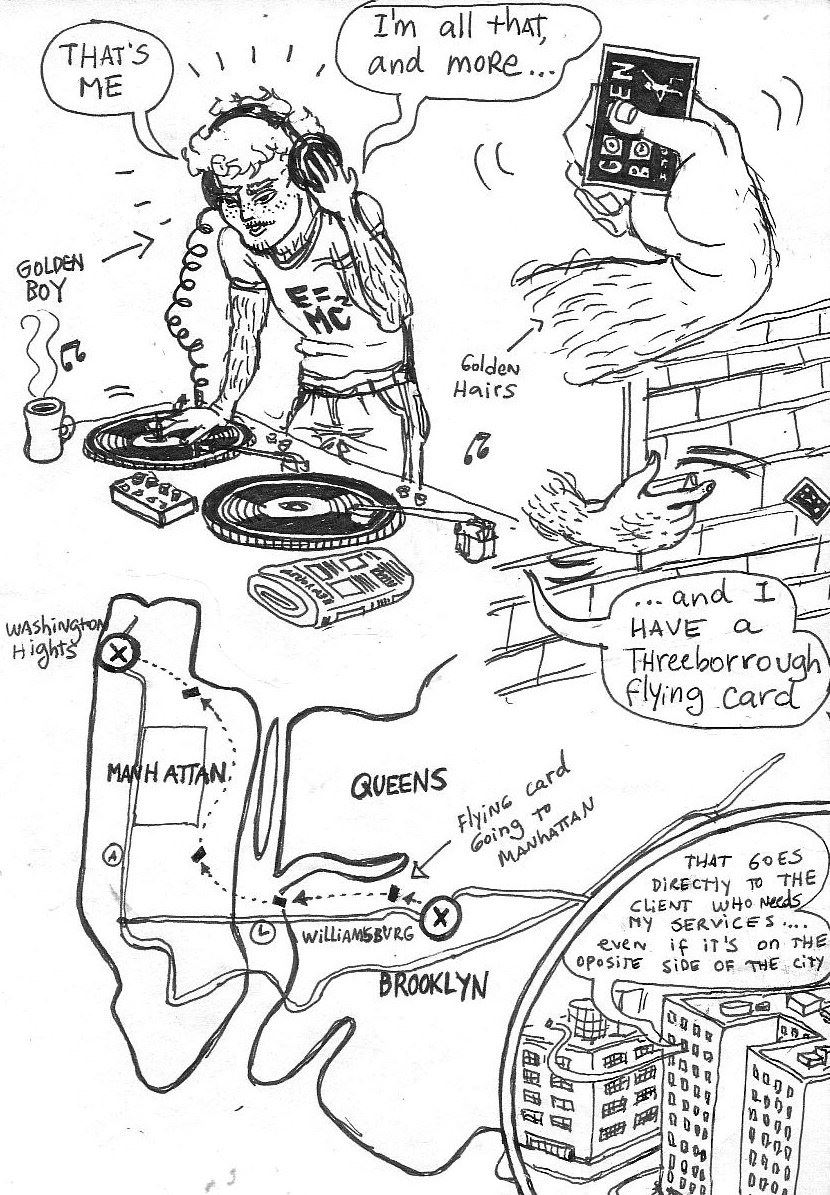 THAT'S
ME
I'm all that,
and more...
GOLDEN
BOY
E=
MC²
GOLDEN
BO
Golden
Hairs
...and I
HAVE a
THreeborrough
flying card
WAshington
Hights
MANHATTAN
QUEENS
FLYING card
Going to
MANHATTAN
A
L
WilliAMSBURG
BROOKLYN
THAT GOES
DIRECTLY TO THE
CLIENT WHO NEEDS
MY SERVICES....
even if it's on THE
OPOSITE SIDE OF THE CITY